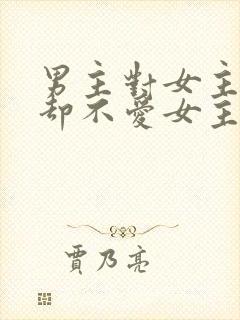 男主對女主
却不愛女主
賈乃亮